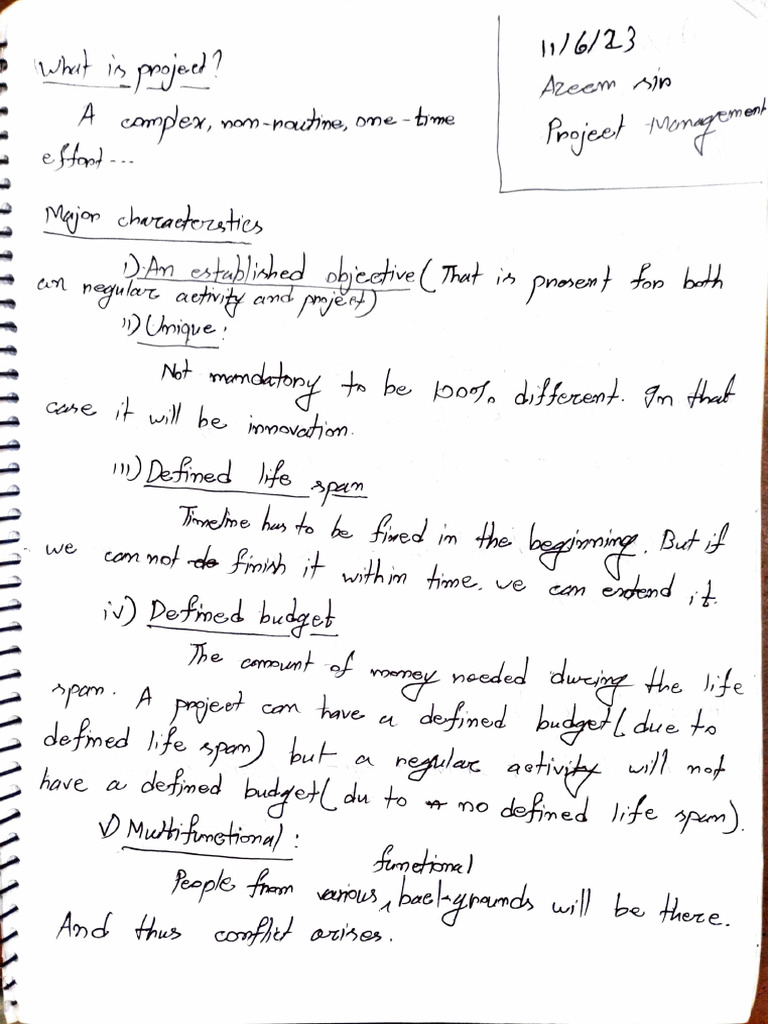 11/6/23
Azeem sir
Project Management
What is project?
A complex, non-routine, one-time
effort...
Major characterstics
i) An established objective (That is present for both
an regular activity and project)
ii) Unique:
Not mandatory to be 100% different. In that
case it will be innovation.
iii) Defined life span
Timeline has to be fixed in the beginning. But if
we can not do finish it within time. we can extend it.
iv) Defined budget
The amount of money needed during the life
span. A project can have a defined budget (due to
defined life span) but a regular activity will not
have a defined budget (du to no defined life span).
v) Multifunctional:
People from various functional backgrounds will be there.
And thus conflict arises.